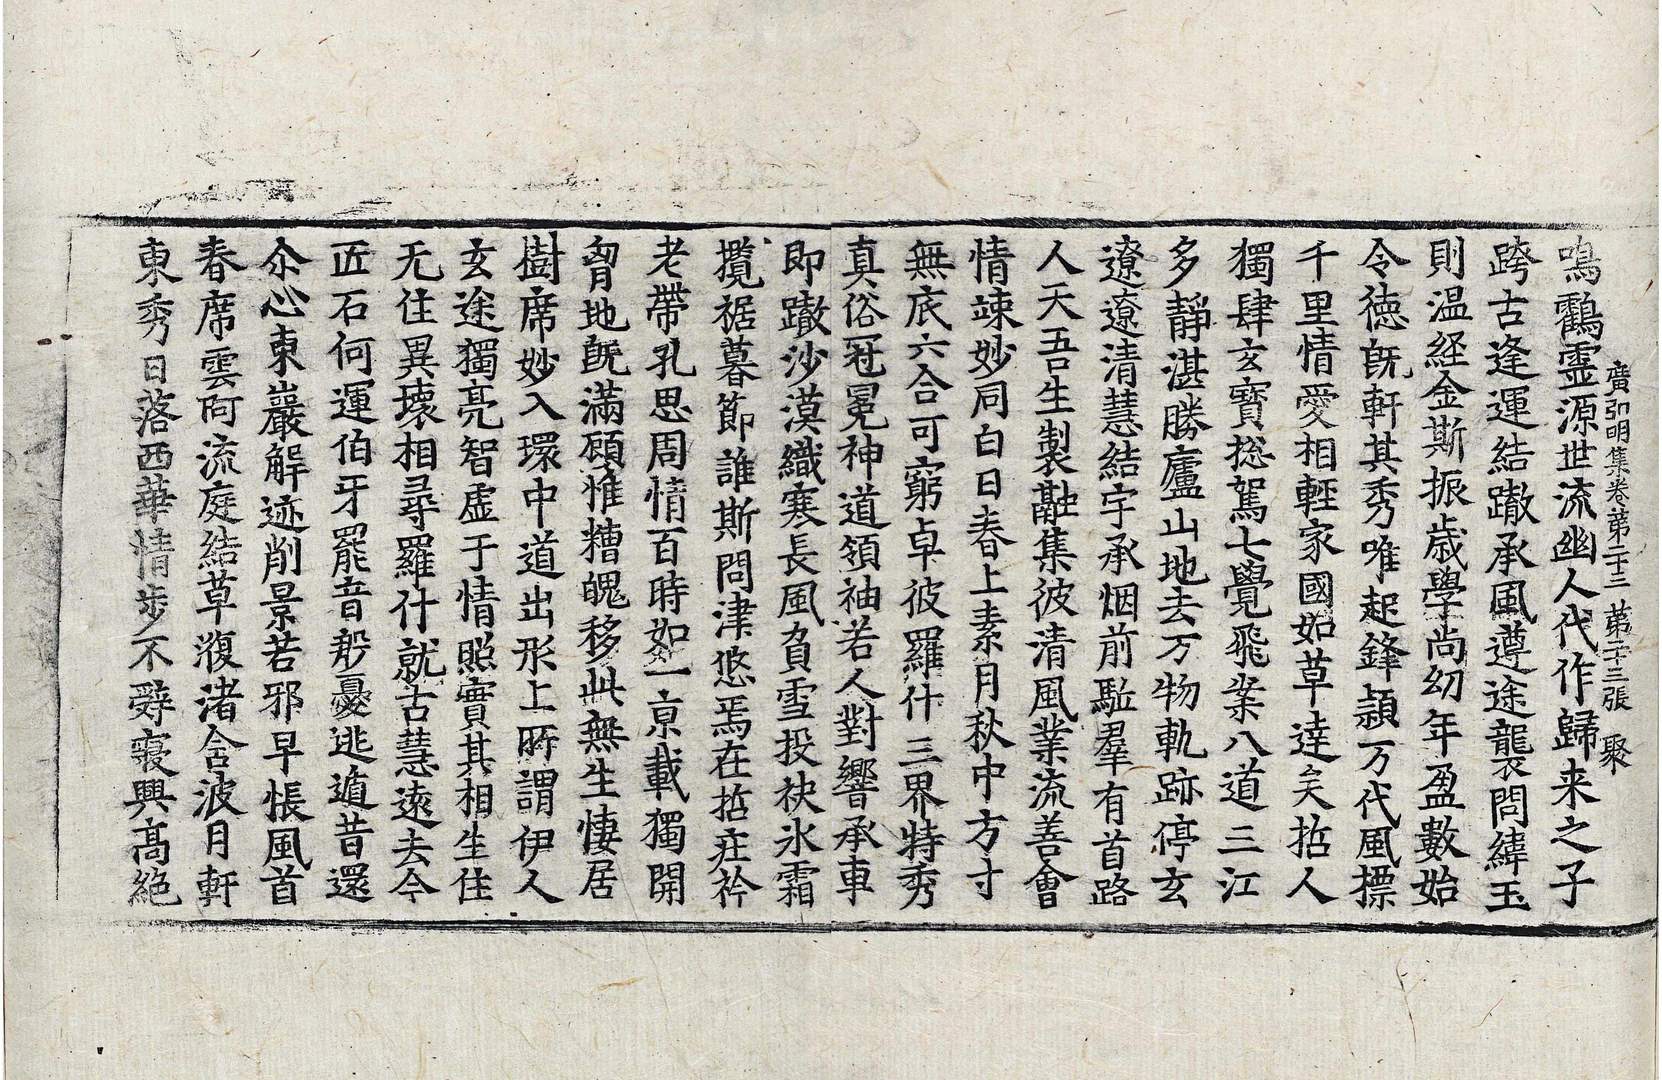 廣弘明集卷第二十三 第二十三張 聚
鳴鸖霊源世流幽人代作歸来之子
跨古逢運結轍承風遵途襲問緯玉
則温経金斯振歳學尚幼年盈數始
令徳既軒其秀唯起鋒頴万代風摽
千里情愛相輕家國如草達矣哲人
獨肆玄寳捴駕七覺飛案八道三江
多靜湛勝廬山地去万物軌跡停玄
遼遼清慧結宇承烟前駈羣有首路
人天吾生製融集彼清風業流善會
情竦妙同白日春上素月秋中方寸
無底六合可窮卓彼羅什三界特秀
真俗冠冕神道領袖若人對響承車
即轍沙漠織寒長風負雪投袂氷霜
攬裾暮節誰斯問津悠焉在哲疰衿
老帶孔思周情百時如一京載獨開
匈地既滿願惟糟魄移此無生悽居
樹席妙入環中道出形上所謂伊人
玄途獨亮智虚于情照實其相生住
无住異壊相尋羅什就古慧遠去今
匠石何運伯牙罷音躬憂逃遁昔還
尒心東巖解迹削景若邪早悵風首
春席雲阿流庭結草澓渚舎波月軒
東秀日落西華情步不辤寢興髙絶